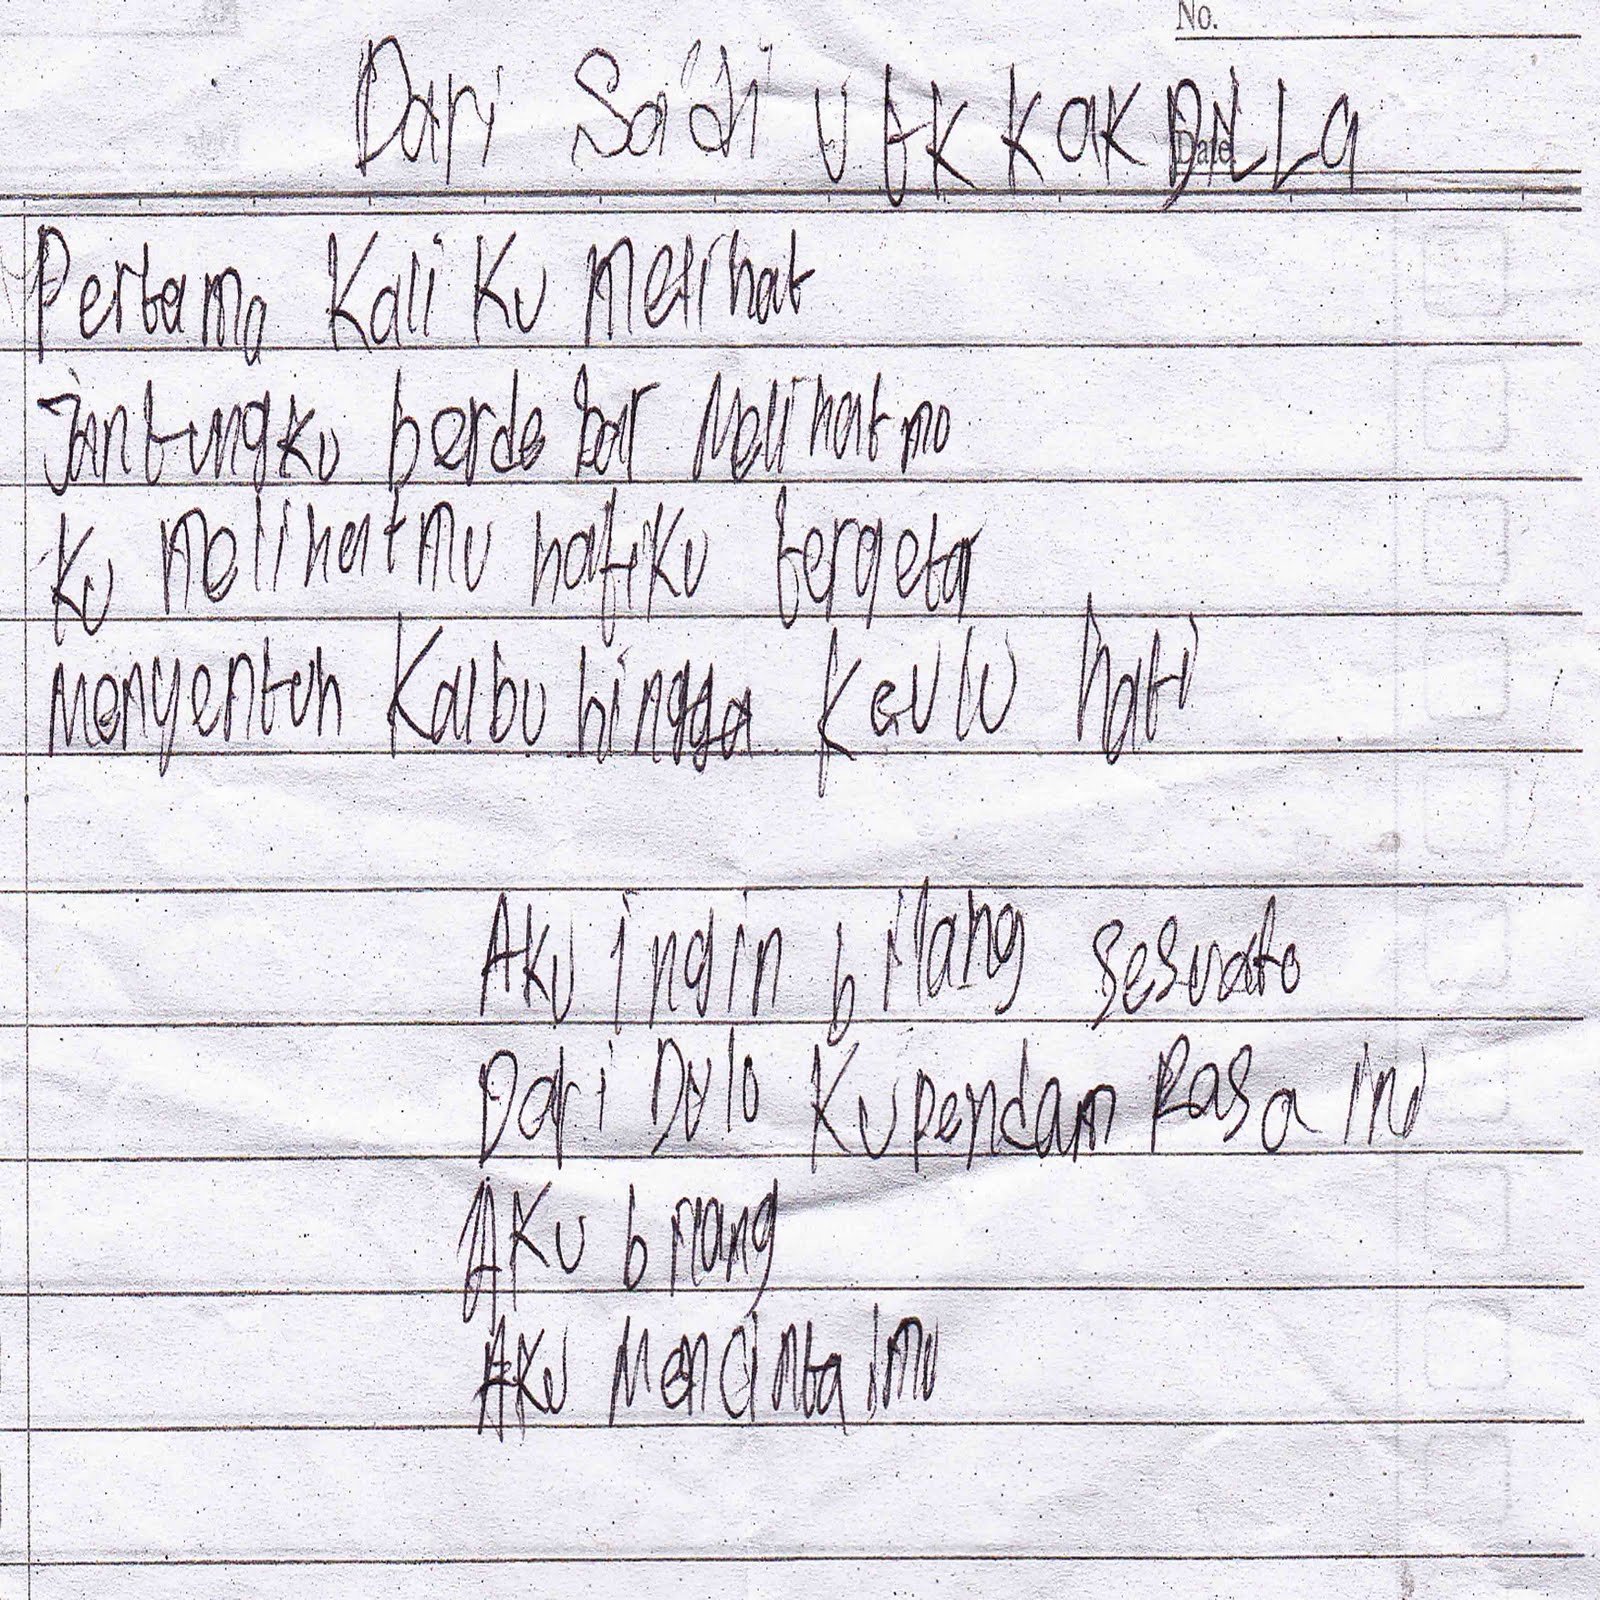 No.
Dari Sadi utk kak DiLLa
Date
Pertama Kali Ku melihat
Jantungku berdebar Melihatmu
Ku melihatmu hatiku tergetar
Menyentuh Kalbu hingga Keulu hati
Aku ingin bilang sesuatu
Dari Dulu Kupendam Rasa ini
Aku bilang
Aku Mencintaimu